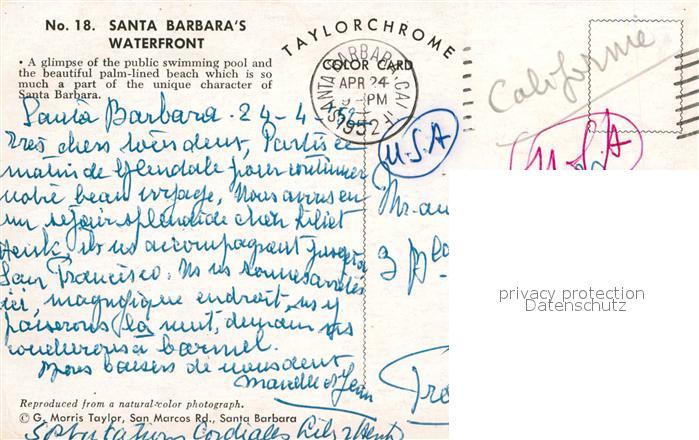 No. 18. SANTA BARBARA'S
WATERFRONT
• A glimpse of the public swimming pool and
the beautiful palm-lined beach which is so
much a part of the unique character of
Santa Barbara.
TAYLORCHROME
COLOR CARD
SANTA BARBARA, CALIF.
APR 24
9-PM
1952
Californie
U.S.A
U.S.A
Santa Barbara. 24-4-52
Très chers tous deux, Partis ce
matin de Glendale pour continuer
notre beau voyage, Nous avons eu
un séjour splendide chez Lili et
Henk, ils ns accompagnent jusqu'à
San Francisco. Ns ns sommes arrêtés
ici, magnifique endroit, ns y
passerons la nuit, demain ns
coucherons à Carmel.
Gros baisers de nous deux
Marcelle & Jean
Mr. au
3 Pl
privacy protection
Datenschutz
Reproduced from a natural-color photograph.
© G. Morris Taylor, San Marcos Rd., Santa Barbara
Salutations Cordiales Lili & Henk